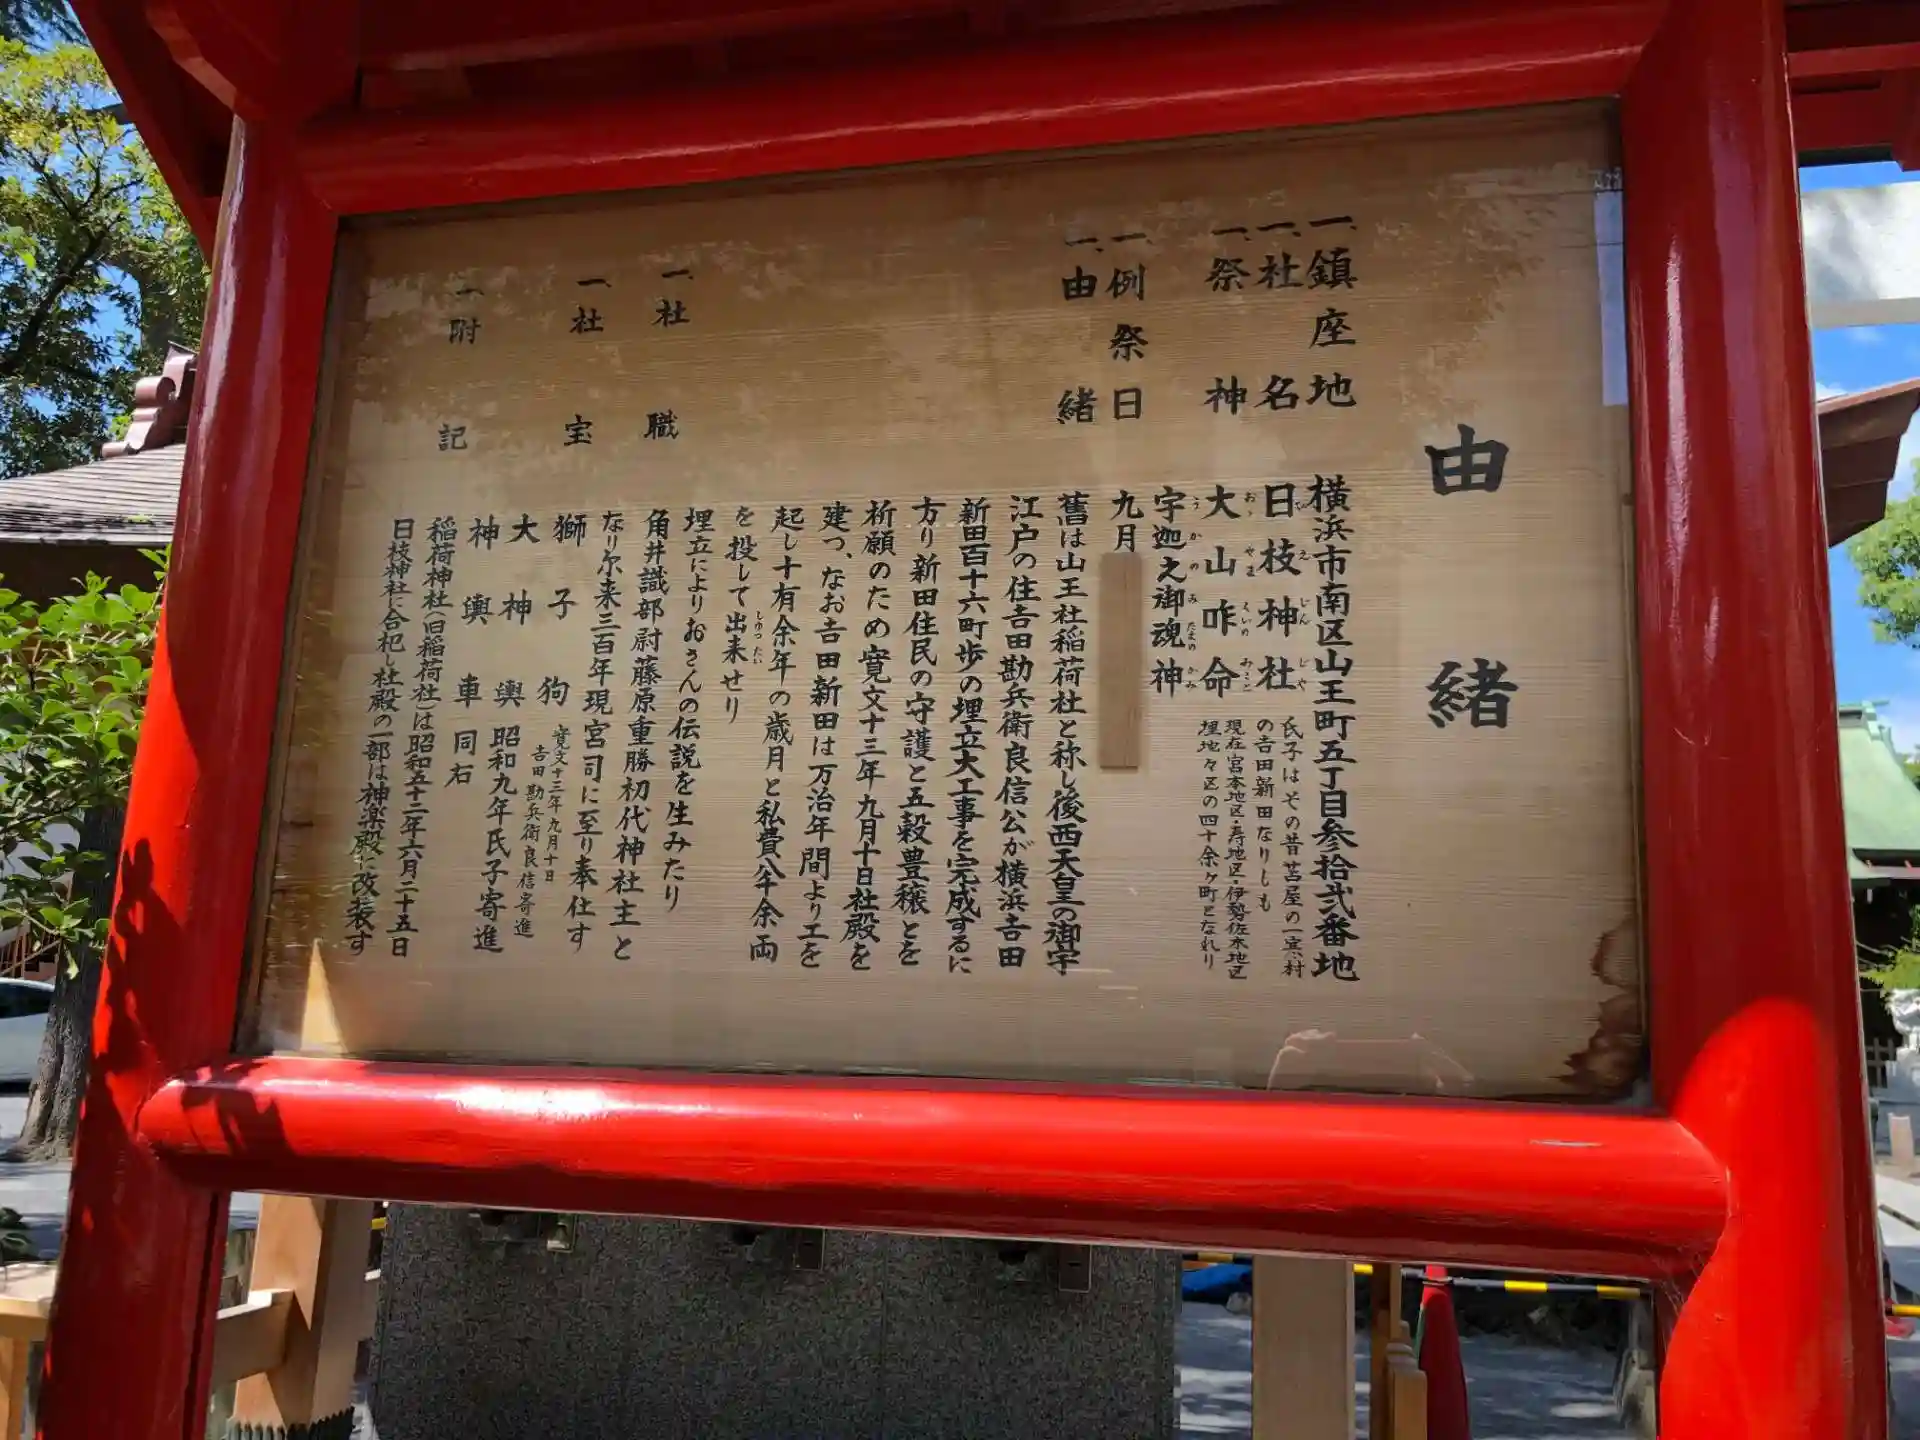 由緒
一、鎮座地 横浜市南区山王町五丁目参拾弐番地
一、社名 日枝神社
ひえじんじゃ
氏子はその昔苫屋の一寒村
の吉田新田なりしも
現在宮本地区・寿地区・伊勢佐木地区
埋地々区の四十余ヶ町となれり
一、祭神 大山咋命
おおやまくいのみこと
宇迦之御魂神
うかのみたまのかみ
一、例祭日 九月
一、由緒 舊は山王社稲荷社と称し後西天皇の御宇
江戸の住吉田勘兵衛良信公が横浜吉田
新田百十六町歩の埋立大工事を完成するに
方り新田住民の守護と五穀豊穣とを
祈願のため寛文十三年九月十日社殿を
建つ、なお吉田新田は万治年間より工を
起し十有余年の歳月と私費八千余両
を投して出来せり
しゆつたい
埋立によりおさんの伝説を生みたり
一、社職 角井識部尉藤原重勝初代神社主と
なり尓来三百年現宮司に至り奉仕す
一、社宝 獅子狗 寛文十三年九月十日
吉田勘兵衛良信寄進
大神輿 昭和九年氏子寄進
神輿車 同右
一、附記 稲荷神社(旧稲荷社)は昭和五十二年六月二十五日
日枝神社に合祀し社殿の一部は神楽殿に改装す